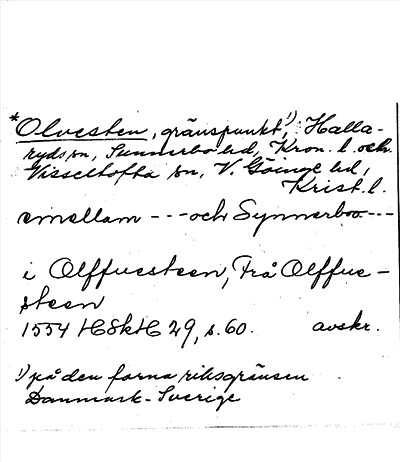 *Olvesten, gränspunkt,¹⁾ Halla-
ryds sn, Sunnerbo hd, Kron. l. och
Visseltofta sn, V. Göinge hd,
Krist. l.
emellam --- och Synnerboo ---
i Olffuesteen, Frå Olffue-
steen
1554 HSkH 29, s. 60. avskr.
¹⁾ på den forna riksgränsen
Danmark - Sverige